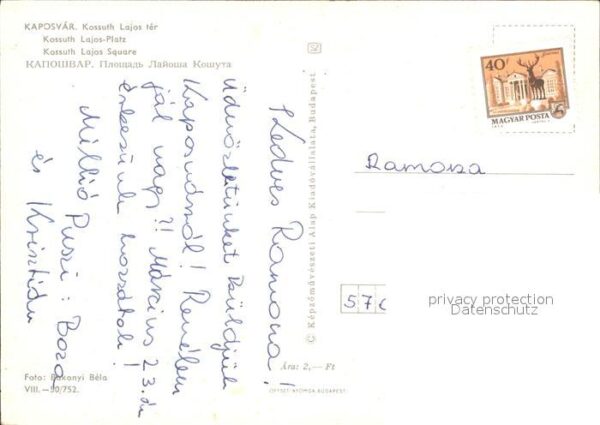 KAPOSVÁR. Kossuth Lajos tér
Kossuth Lajos-Platz
Kossuth Lajos Square
КАПОШВАР. Площадь Лайоша Кошута
Kedves Ramona!
Üdvözletünket küldjük
Kaposvárról! Remélem
jól vagy?! Március 2.3.án
érkezünk hozzátok!
Millió Puszi: Bora
és Krisztián
Foto: Bakonyi Béla
VIII.—50/752.
© Képzőművészeti Alap Kiadóvállalata, Budapest
Ára: 2,— Ft
OFFSET NYOMDA BUDAPEST
40f
MAGYAR POSTA
Ramona
57
privacy protection
Datenschutz